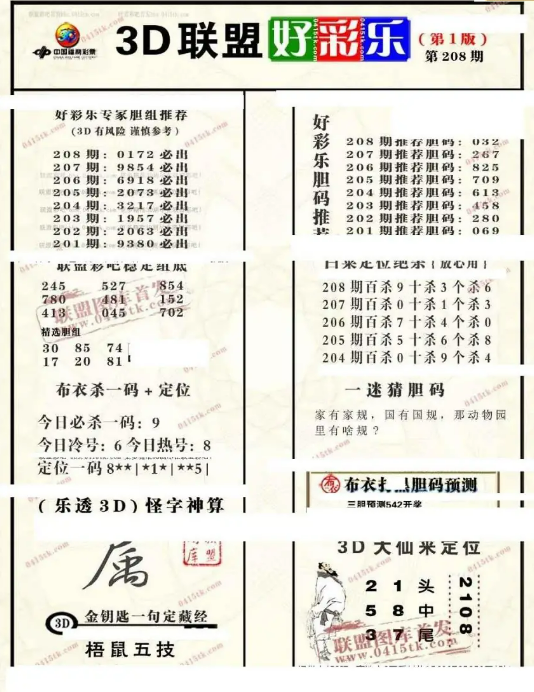 3D联盟好彩乐
(第1版)
第208期
中国福利彩票
好彩乐专家胆组推荐
(3D有风险 谨慎参考)
208期: 0172必出
207期: 9854必出
206期: 6918必出
205期: 2073必出
204期: 3217必出
203期: 1957必出
202期: 2063必出
201期: 9380必出
联盟彩吧稳定组底
245 527 854
780 481 152
413 045 702
精选胆组
30 85 74
17 20 81
布衣杀一码+定位
今日必杀一码: 9
今日冷号: 6今日热号: 8
定位一码8**|*1*|**5|
(乐透3D)怪字神算
3D
金钥匙一句定藏经
梧鼠五技
好彩乐胆码推荐
208期推荐胆码: 032
207期推荐胆码: 267
206期推荐胆码: 825
205期推荐胆码: 709
204期推荐胆码: 613
203期推荐胆码: 458
202期推荐胆码: 280
201期推荐胆码: 069
白菜定位绝杀[放心用]
208期百杀9十杀3个杀6
207期百杀0十杀1个杀3
206期百杀7十杀4个杀0
205期百杀5十杀6个杀8
204期百杀0十杀9个杀4
一迷猜胆码
家有家规，国有国规，那动物园
里有啥规?
胆码预测
三胆预测542开奖
3D大仙来定位
2 1 头
5 8 中
3 7 尾
2108
联盟图库首发
www.0415tk.com